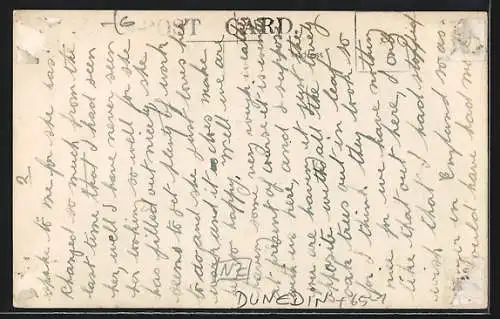 POST CARD
6
2
spoke to me for she was
changed so much from the
last time that I had seen
her, well I have never seen
her looking so well for she
has filled out nicely, she
seems to get plenty of work
to do and she just loves her
and it does make
her so happy. Well we are
having some very rough
at present of course it is
with us here, and I suppose
you are having it just the
opposite with all the lovely
oak trees out in leaf
for I think they look so
nice for we have nothing
like that out here, I only
wish that I had stopped
longer in England so as
could have had more
NZ
DUNEDIN